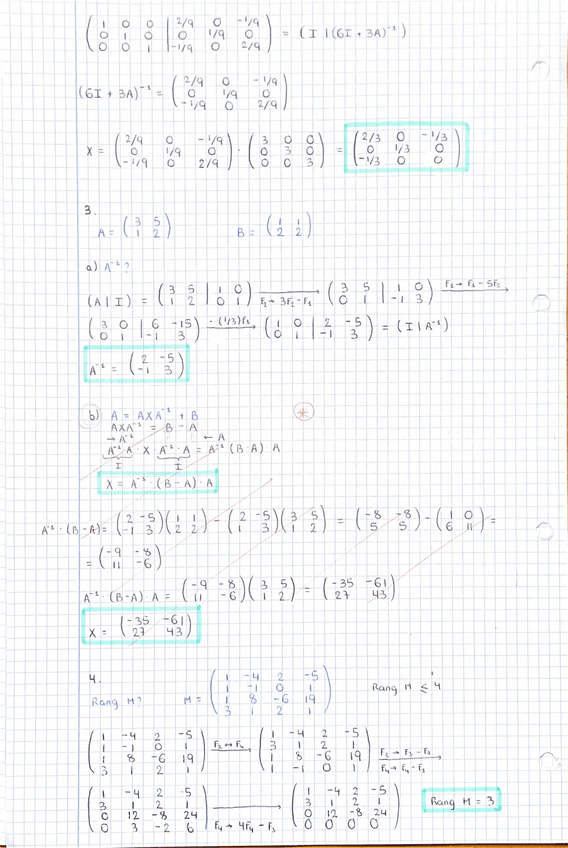 ( 1 0 0 | 2/9 0 -1/9
0 1 0 | 0 1/9 0
0 0 1 | -1/9 0 2/9 ) = ( I | (6I + 3A)⁻¹ )
(6I + 3A)⁻¹ = ( 2/9 0 -1/9
0 1/9 0
-1/9 0 2/9 )
X = ( 2/9 0 -1/9
0 1/9 0
-1/9 0 2/9 ) · ( 3 0 0
0 3 0
0 0 3 ) = ( 2/3 0 -1/3
0 1/3 0
-1/3 0 0 )
3.
A = ( 3 5
1 2 ) B = ( 1 1
2 2 )
a) A⁻¹?
(A | I) = ( 3 5 | 1 0
1 2 | 0 1 ) F₂→ 3F₂-F₁ ( 3 5 | 1 0
0 1 | -1 3 ) F₁→ F₁-5F₂
( 3 0 | 6 -15
0 1 | -1 3 ) · (1/3)F₁ ( 1 0 | 2 -5
0 1 | -1 3 ) = (I | A⁻¹)
A⁻¹ = ( 2 -5
-1 3 )
b) A = AXA⁻¹ + B *
AXA⁻¹ = B - A
→ A⁻¹ ← A
A⁻¹·A · X · A⁻¹·A = A⁻¹ (B-A) A
I I
X = A⁻¹ · (B-A) · A
A⁻¹ · (B-A) = ( 2 -5
-1 3 ) ( 1 1
2 2 ) - ( 2 -5
1 3 ) ( 3 5
1 2 ) = ( -8 -8
5 5 ) - ( 1 0
6 11 ) =
= ( -9 -8
11 -6 )
A⁻¹ · (B-A) · A = ( -9 -8
11 -6 ) ( 3 5
1 2 ) = ( -35 -61
27 43 )
X = ( -35 -61
27 43 )
4.
Rang M? M = ( 1 -4 2 -5
1 -1 0 1
1 8 -6 19
3 1 2 1 ) Rang M ≤ 4
( 1 -4 2 -5
1 -1 0 1
1 8 -6 19
3 1 2 1 ) F₂ ↔ F₄ ( 1 -4 2 -5
3 1 2 1
1 8 -6 19
1 -1 0 1 ) F₃ → F₃ - F₁
F₄ → F₄ - F₁
( 1 -4 2 -5
3 1 2 1
0 12 -8 24
0 3 -2 6 ) F₄ → 4F₄ - F₃ ( 1 -4 2 -5
3 1 2 1
0 12 -8 24
0 0 0 0 ) Rang M = 3